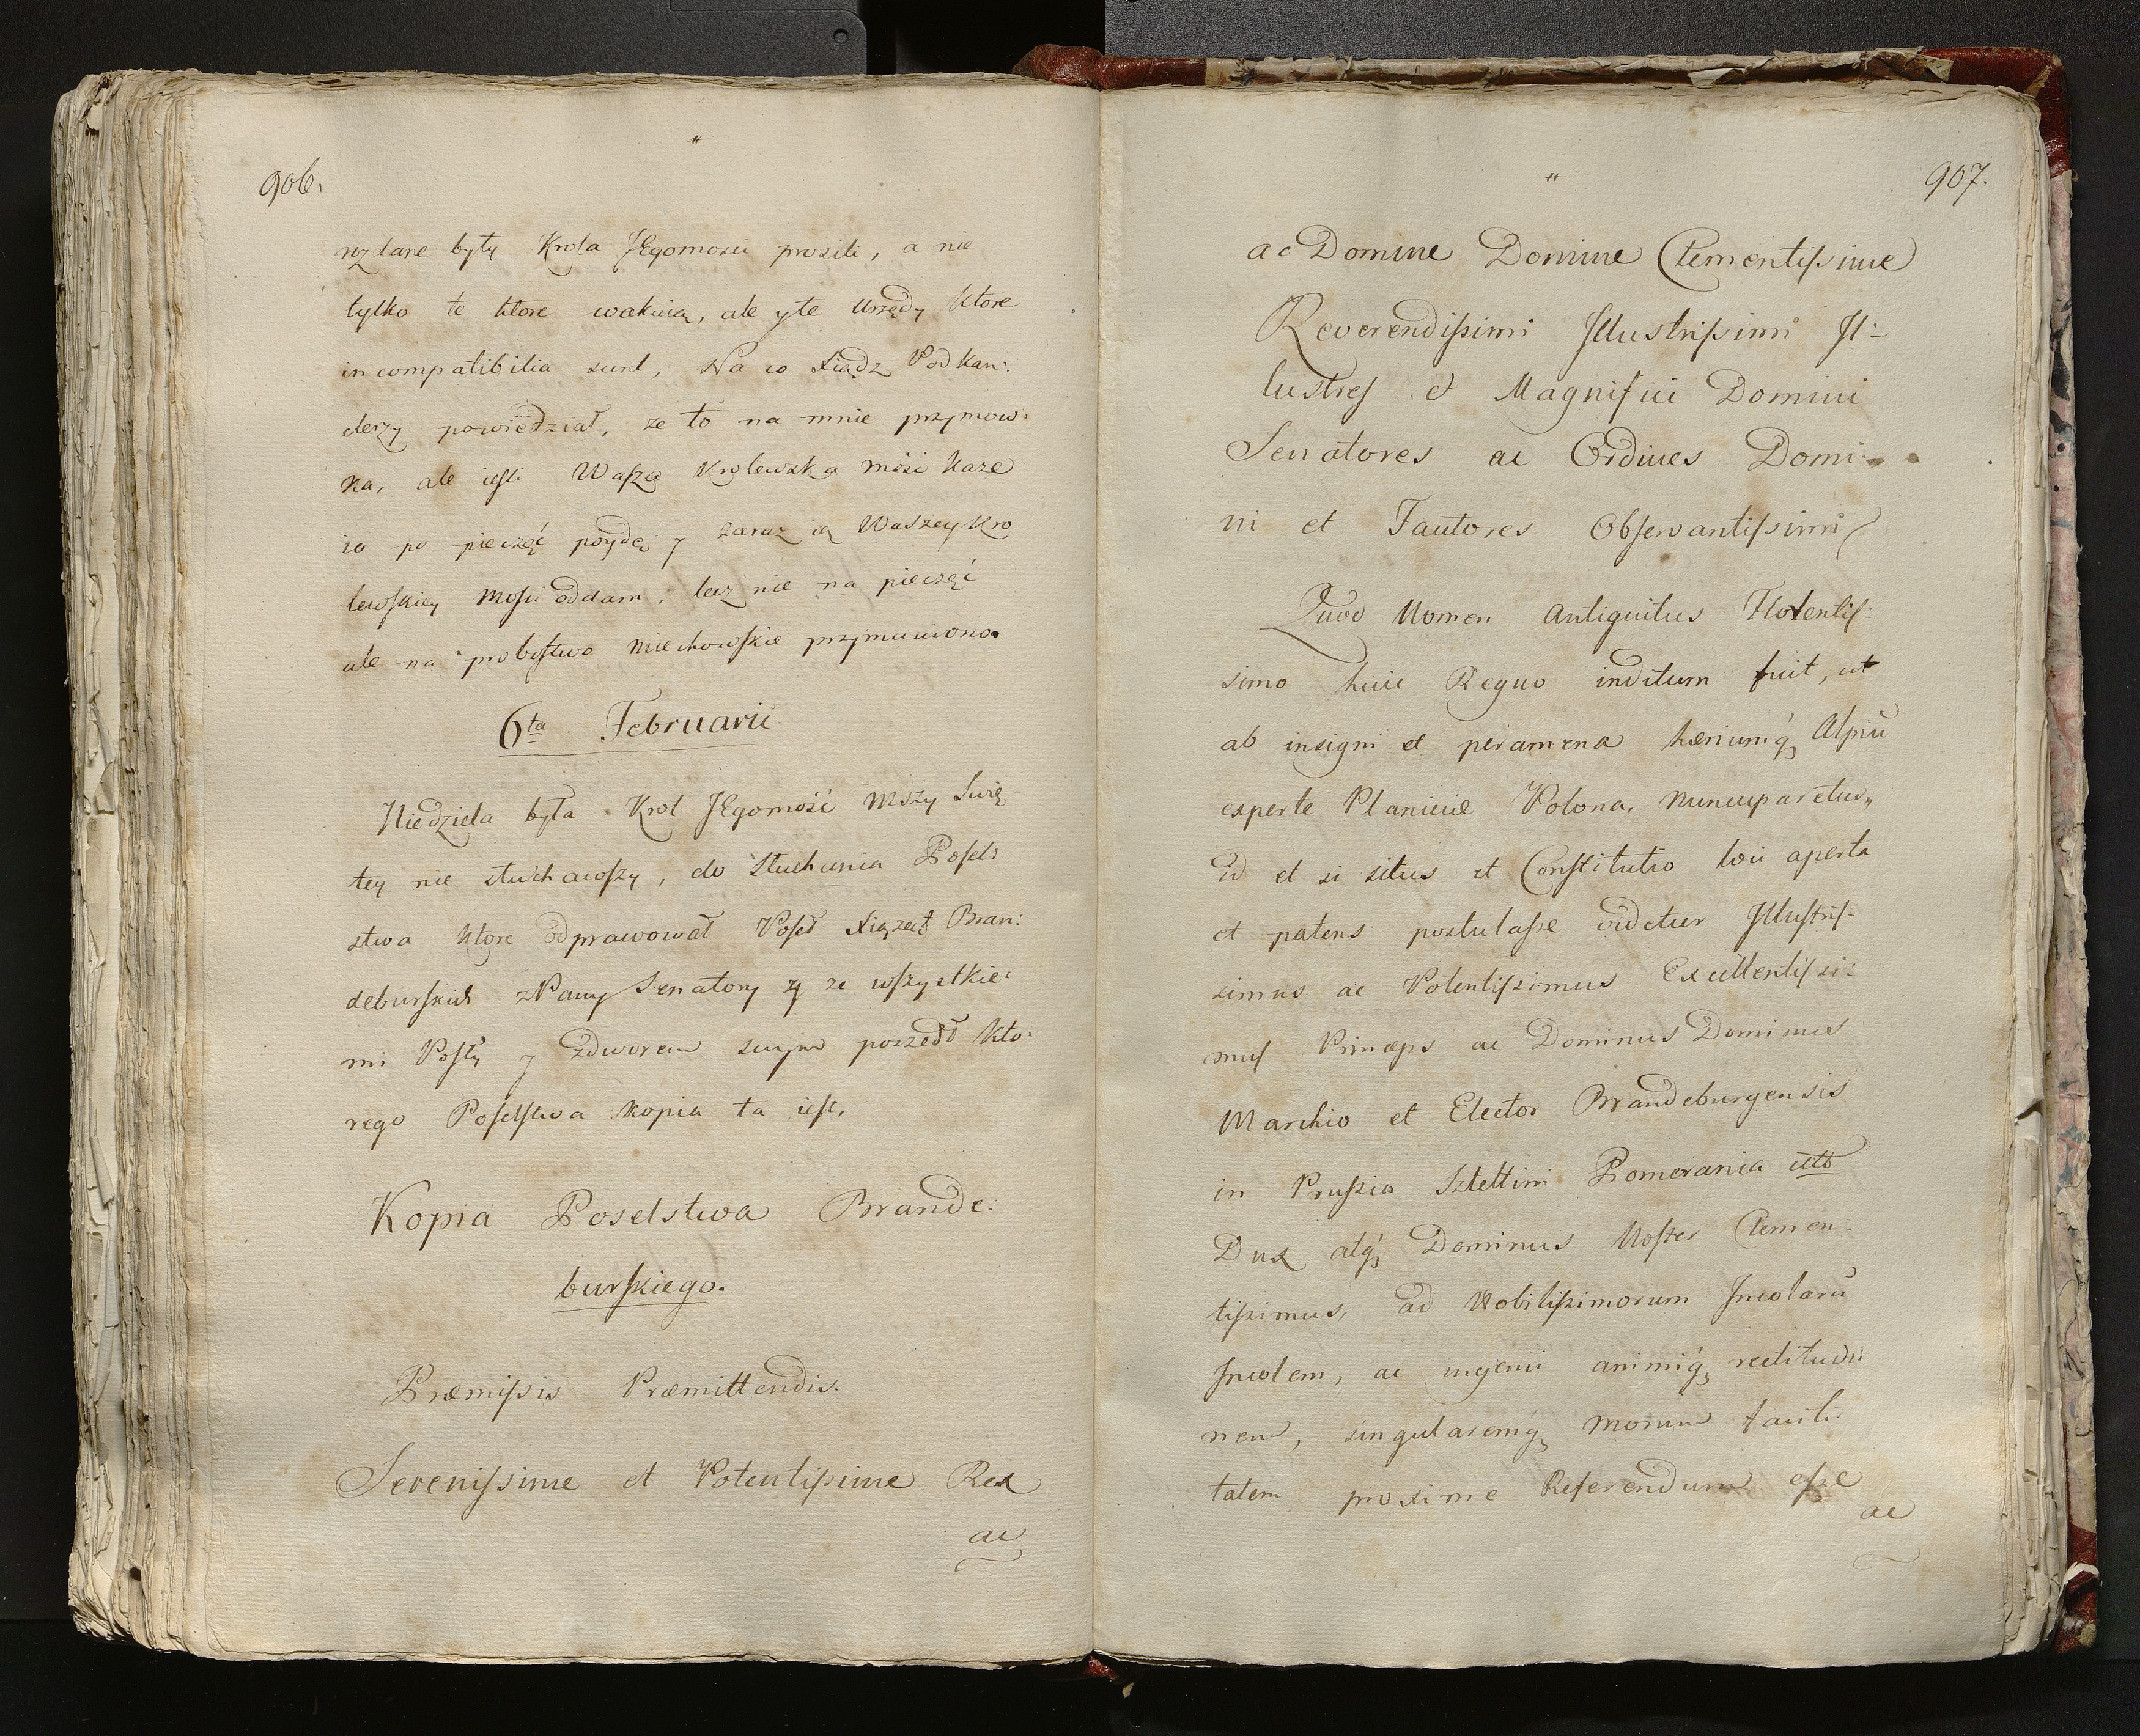 906.
rozdane były Krola JEgomosci prosili, a nie
tylko te ktore wakuią, ale y te Urzędy ktore
incompatibilia sunt, Na co Xiądz Podkan:
clerzy powiedział, ze to na mnie przymow:
ka, ale iesli Wasza Krolewska mośc każe
ia po pieczęć poydę y zaraz ią Waszey Kro
lewskiey Mosci oddam, lecz nie na pieczęć
ale na probostwo Miechowskie przymuiono.
6ta Februarii
Niedziela była Krol JEgomość Mszy Swię
tey nie słuchawszy, do słuchania Posel:
stwa ktore odprawował Poseł Xiążąt Bran:
deburskich z Pany Senatory y ze wszystkie:
mi Posły y z dworem swym poszedł Kto:
rego Poselstwa Kopia ta iest,
Kopia Poselstwa Brande:
burskiego.
Præmissis Præmittendis.
Serenissime et Potentissime Rex
ac
907.
ac Domine Domine Clementissime
Reverendissimi Illustrissimi Il:
lustres et Magnifici Domini
Senatores ac Ordines Domi
ni et Fautores Observantissimi
Quod Nomen Antiquitus Florentis:
simo huic Regno inditum fuit, ut
ab insigni et peramena Alpiū
experte Planicie Polona, Nuncuparetur,
id et si situs et Constitutio loci aperta
et patens postulasse videtur Illustris:
simus ac Potentissimus Excellentissi:
mus Princeps ac Dominus Dominus
Marchio et Elector Brandeburgensis
in Prussia Sztettini Pomerania
Dux atq́; Dominus Noster Clemen
tissimus, ad Nobilissimorum Incolarū
Indolem, ac ingenii animiq́; rectitudi
nem, singularemq́; Morum facili
tatem proxime Referendum esse
ac